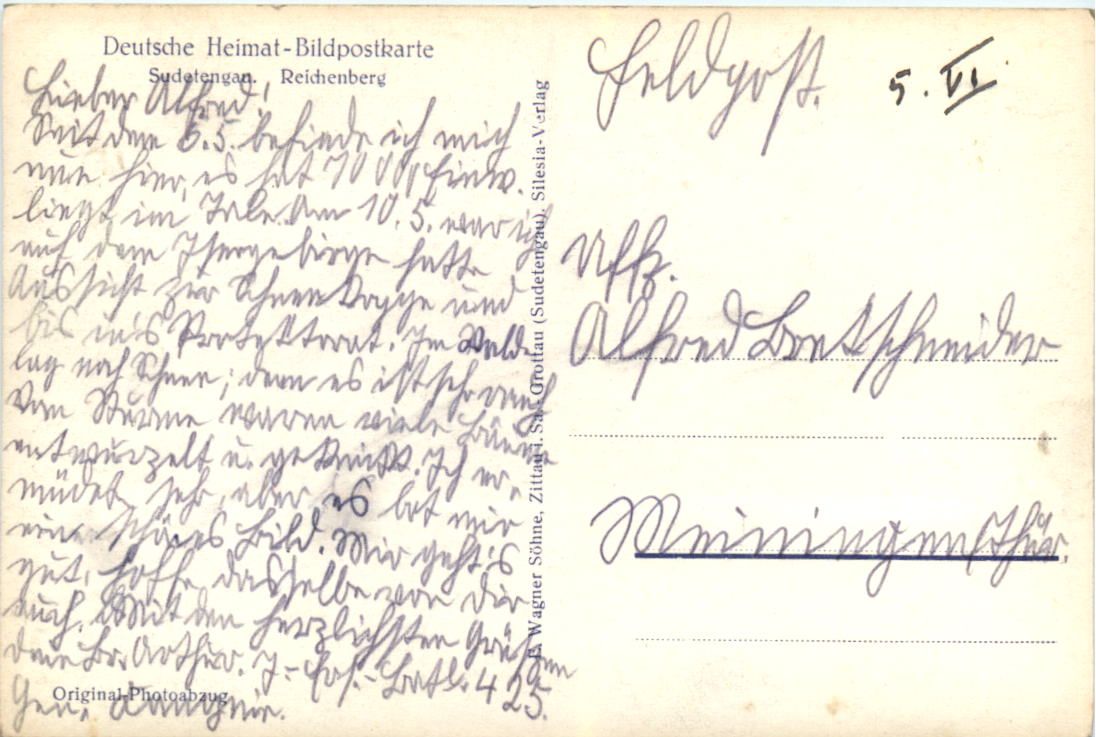 Deutsche Heimat-Bildpostkarte
Sudetengau. Reichenberg
Lieber Alfred!
Seit dem 5.5. befinde ich mich
nun hier, es hat 70 000 Einw.
liegt im Tale. Am 10.5. war ich
auf dem Isergebirge hatte
Aussicht zur Schneekoppe und
bis in's Protektorat. Im Walde
lag noch Schnee; denn es ist sehr rauh
Vom Sturme waren viele Bäume
entwurzelt u. geknickt. Ich er-
müdet sehr, aber es bot mir
eine schönes Bild. Mir geht's
gut, hoffe dasselbe von Dir
auch. Mit den herzlichsten Grüßen
dein Br. Arthur. J.-Ers.-Batl. 425.
Gen.
Original-Photoabzug
F. Wagner Söhne, Zittau i. Sa.-Grottau (Sudetengau). Silesia-Verlag
Feldpost.
5. VI.
Uffz.
Alfred Bretschneider
Meiningen/Thür.